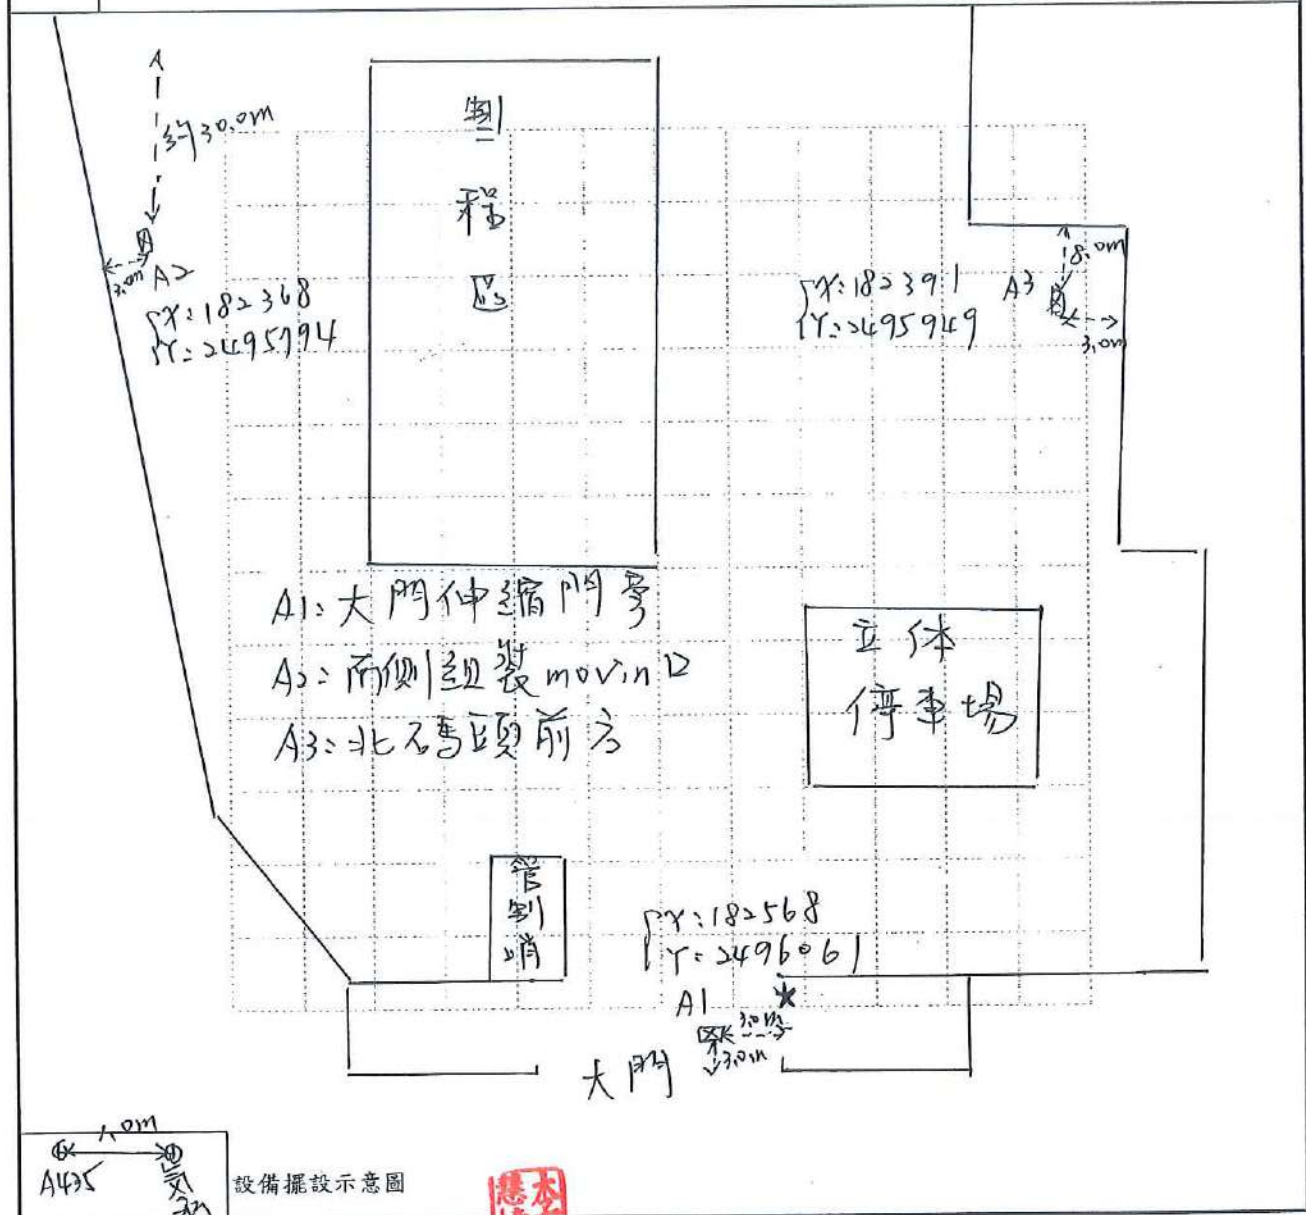 A
約30.0m
3.0m A2
X:182368
Y:2495994
製
程
區
X:182391
Y:2495949
A3
8.0m
3.0m
A1:大門伸縮門旁
A2:西側組裝movin口
A3:北碼頭前方
立体
停車場
管
制
哨
X:182568
Y:2496061
A1
3.0m
3.0m
大門
1.0m
A435
設備擺設示意圖